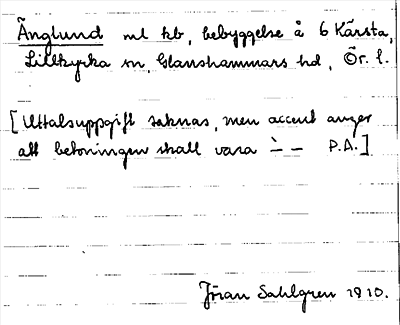 Änglund ml kb, bebyggelse å 6 Kärsta,
Lillkyrka sn, Glanshammars hd, Ör. l.
[Uttalsuppgift saknas, men accent anger
att betoningen skall vara ∸ – P.A.]
Jöran Sahlgren 1910.